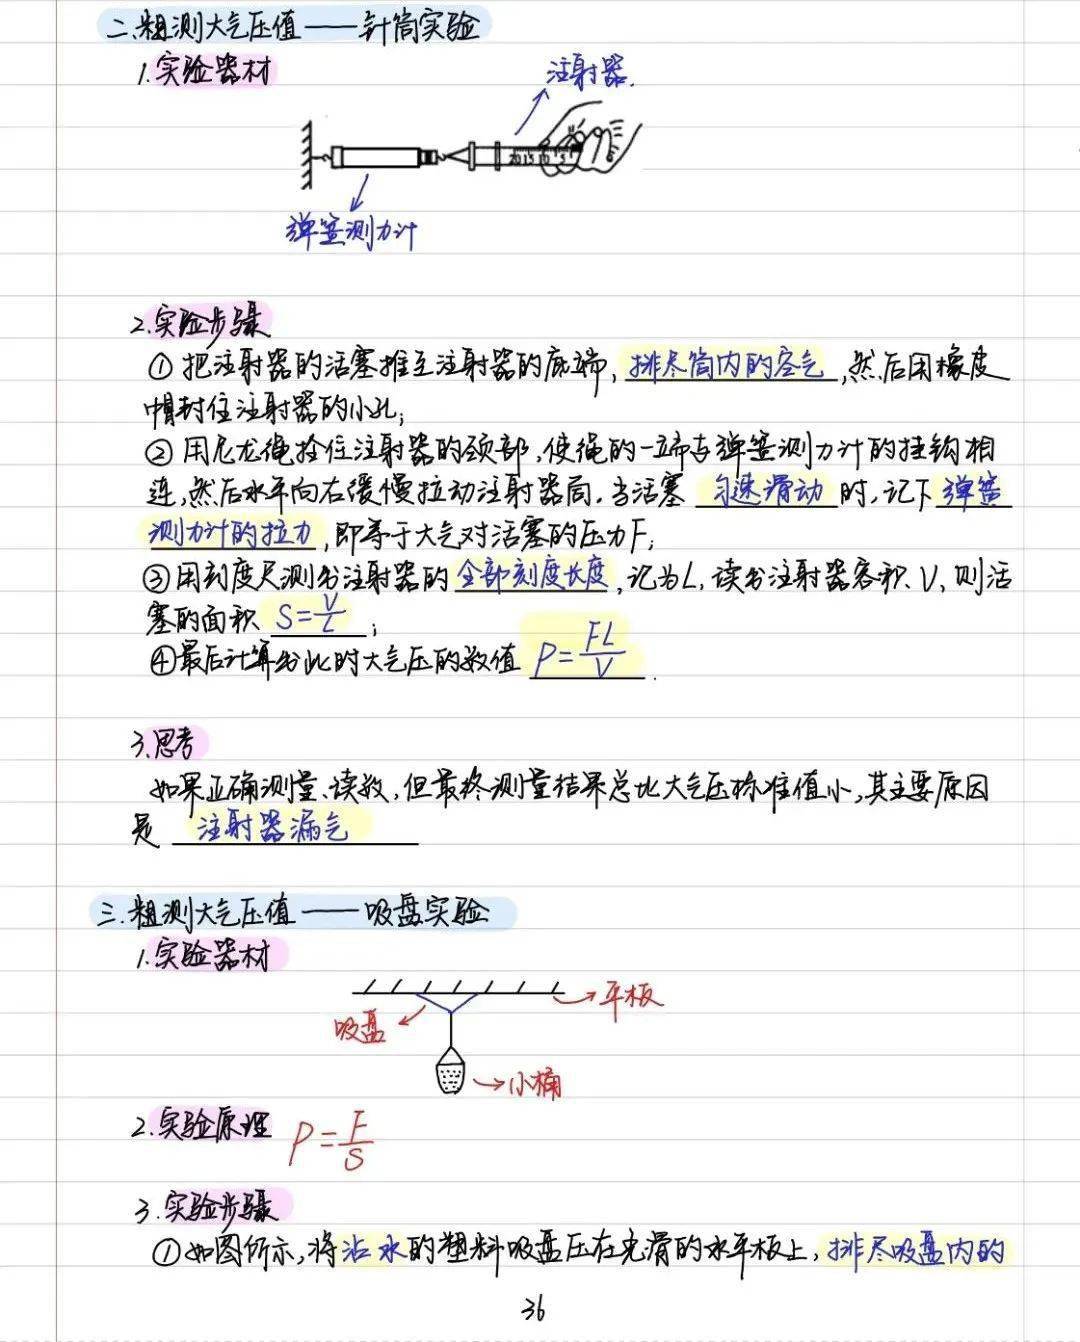 二.粗测大气压值——针筒实验
1.实验器材
注射器.
20 15 10 5
弹簧测力计
2.实验步骤
①把注射器的活塞推至注射器的底端,排尽筒内的空气,然后用橡皮
帽封住注射器的小孔;
②用尼龙绳拴住注射器的颈部,使绳的一端与弹簧测力计的挂钩相
连,然后水平向右缓慢拉动注射器筒.当活塞 匀速滑动 时,记下弹簧
测力计的拉力,即等于大气对活塞的压力F;
③用刻度尺测出注射器的全部刻度长度,记为L,读出注射器容积V,则活
塞的面积 S=V/L ;
④最后计算出此时大气压的数值 P=FL/V .
3.思考
如果正确测量、读数,但最终测量结果总比大气压标准值小,其主要原因
是 注射器漏气
三.粗测大气压值——吸盘实验
1.实验器材
平板
吸盘
小桶
2.实验原理 P=F/S
3.实验步骤
①如图所示,将沾水的塑料吸盘压在光滑的水平板上,排尽吸盘内的
36